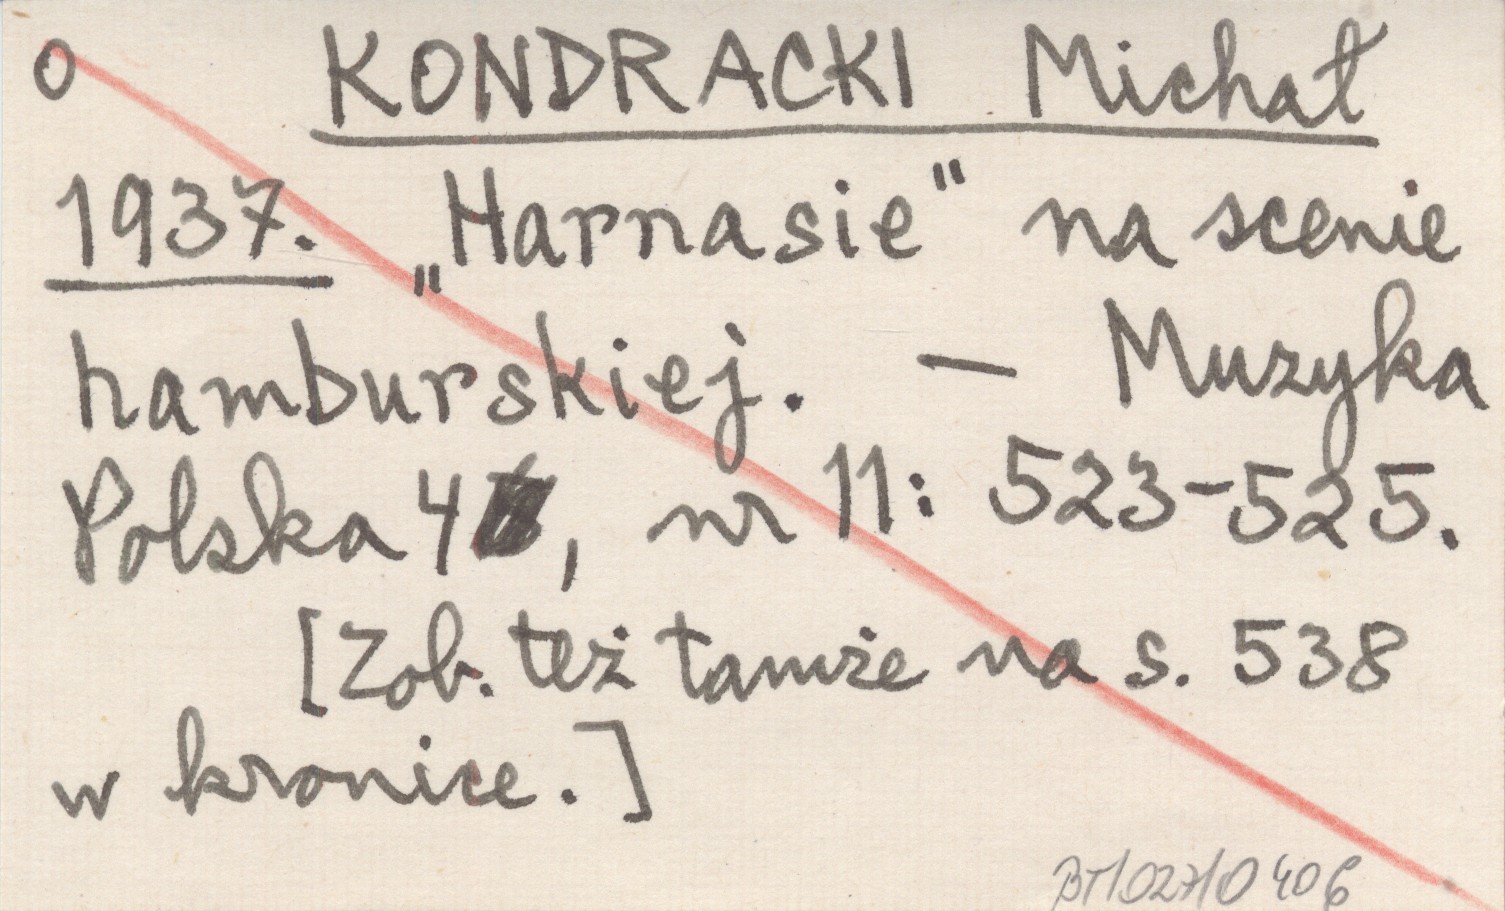 o KONDRACKI Michał
1937. „Harnasie" na scenie
hamburskiej. — Muzyka
Polska 4, nr 11: 523-525.
[Zob. też tamże na s. 538
w kronice.]
BT/027/0406